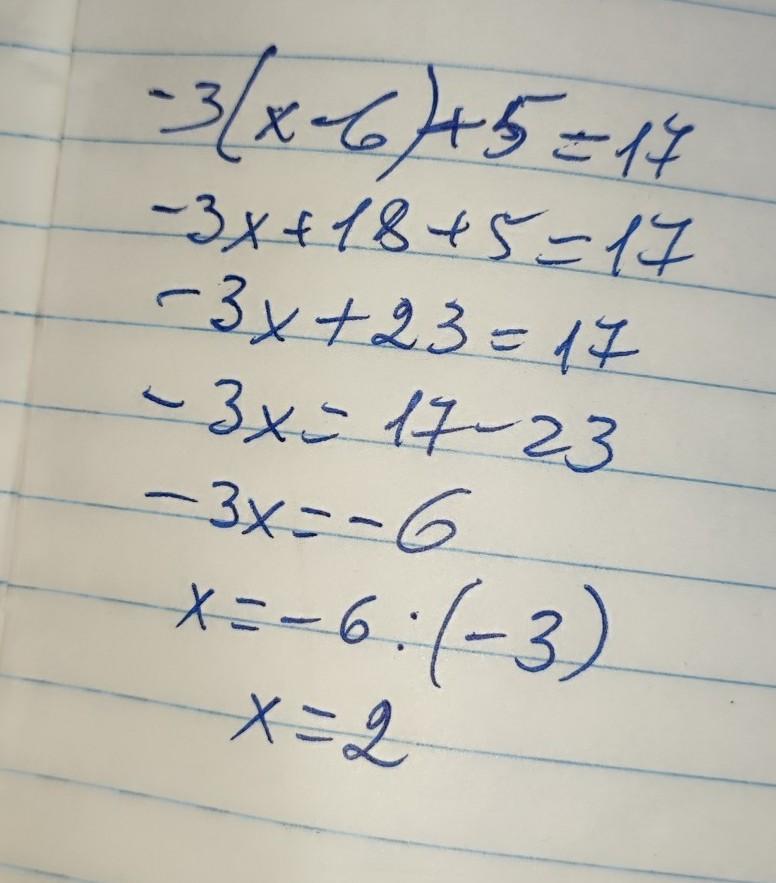 -3(x-6)+5=17
-3x+18+5=17
-3x+23=17
-3x=17-23
-3x=-6
x=-6:(-3)
x=2